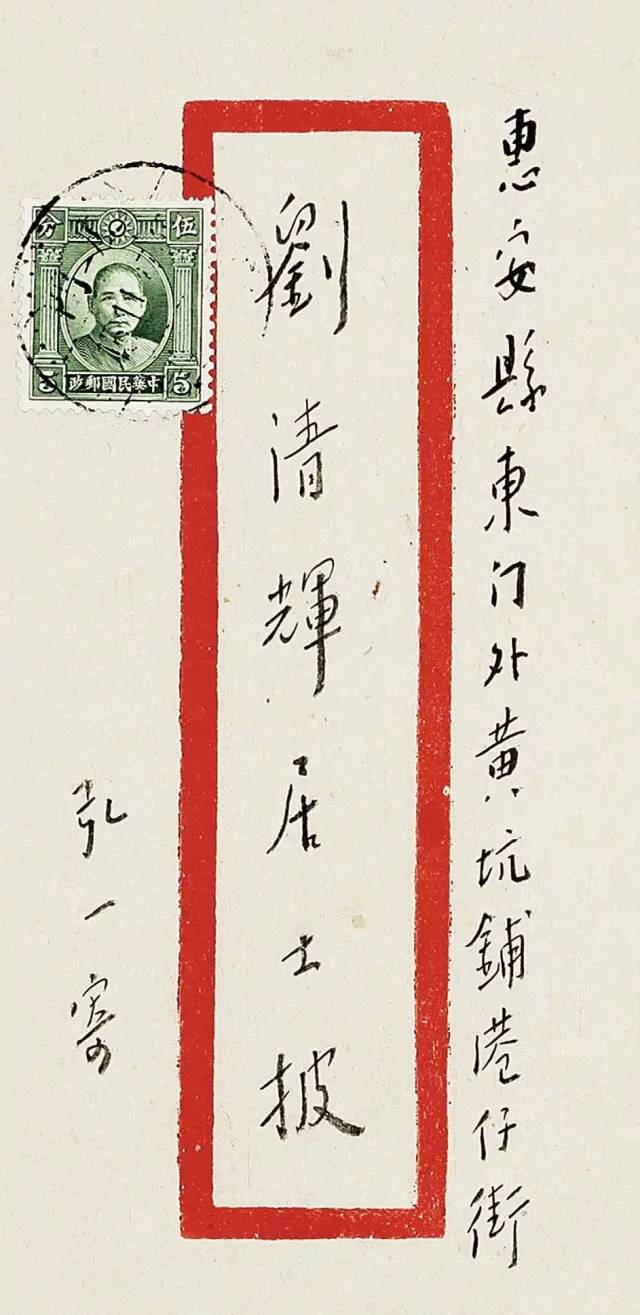 惠安縣東门外黄坑鋪港仔街
劉清輝居士披
弘一寄
伍 分
5 中華民國郵政 5